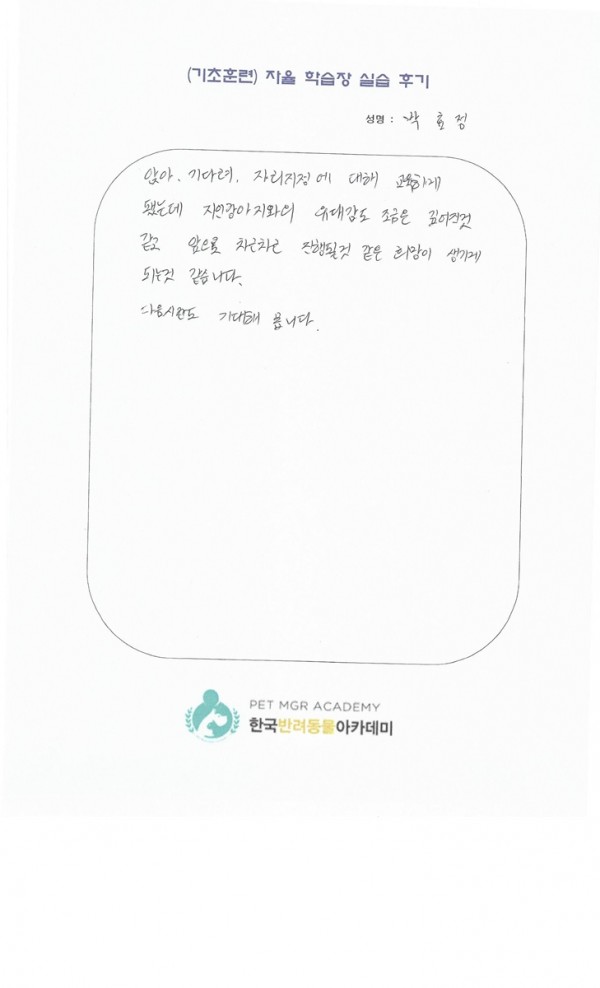 (기초훈련) 자율 학습장 실습 후기
성명 : 박 효 정
앉아, 기다려, 자리지정에 대해 교육하게
됐는데 지인강아지와의 유대감도 조금은 깊어진것
같고 앞으로 차근차근 진행될것 같은 희망이 생기게
되는것 같습니다.
다음시간도 기대해 봅니다.
PET MGR ACADEMY
한국반려동물아카데미